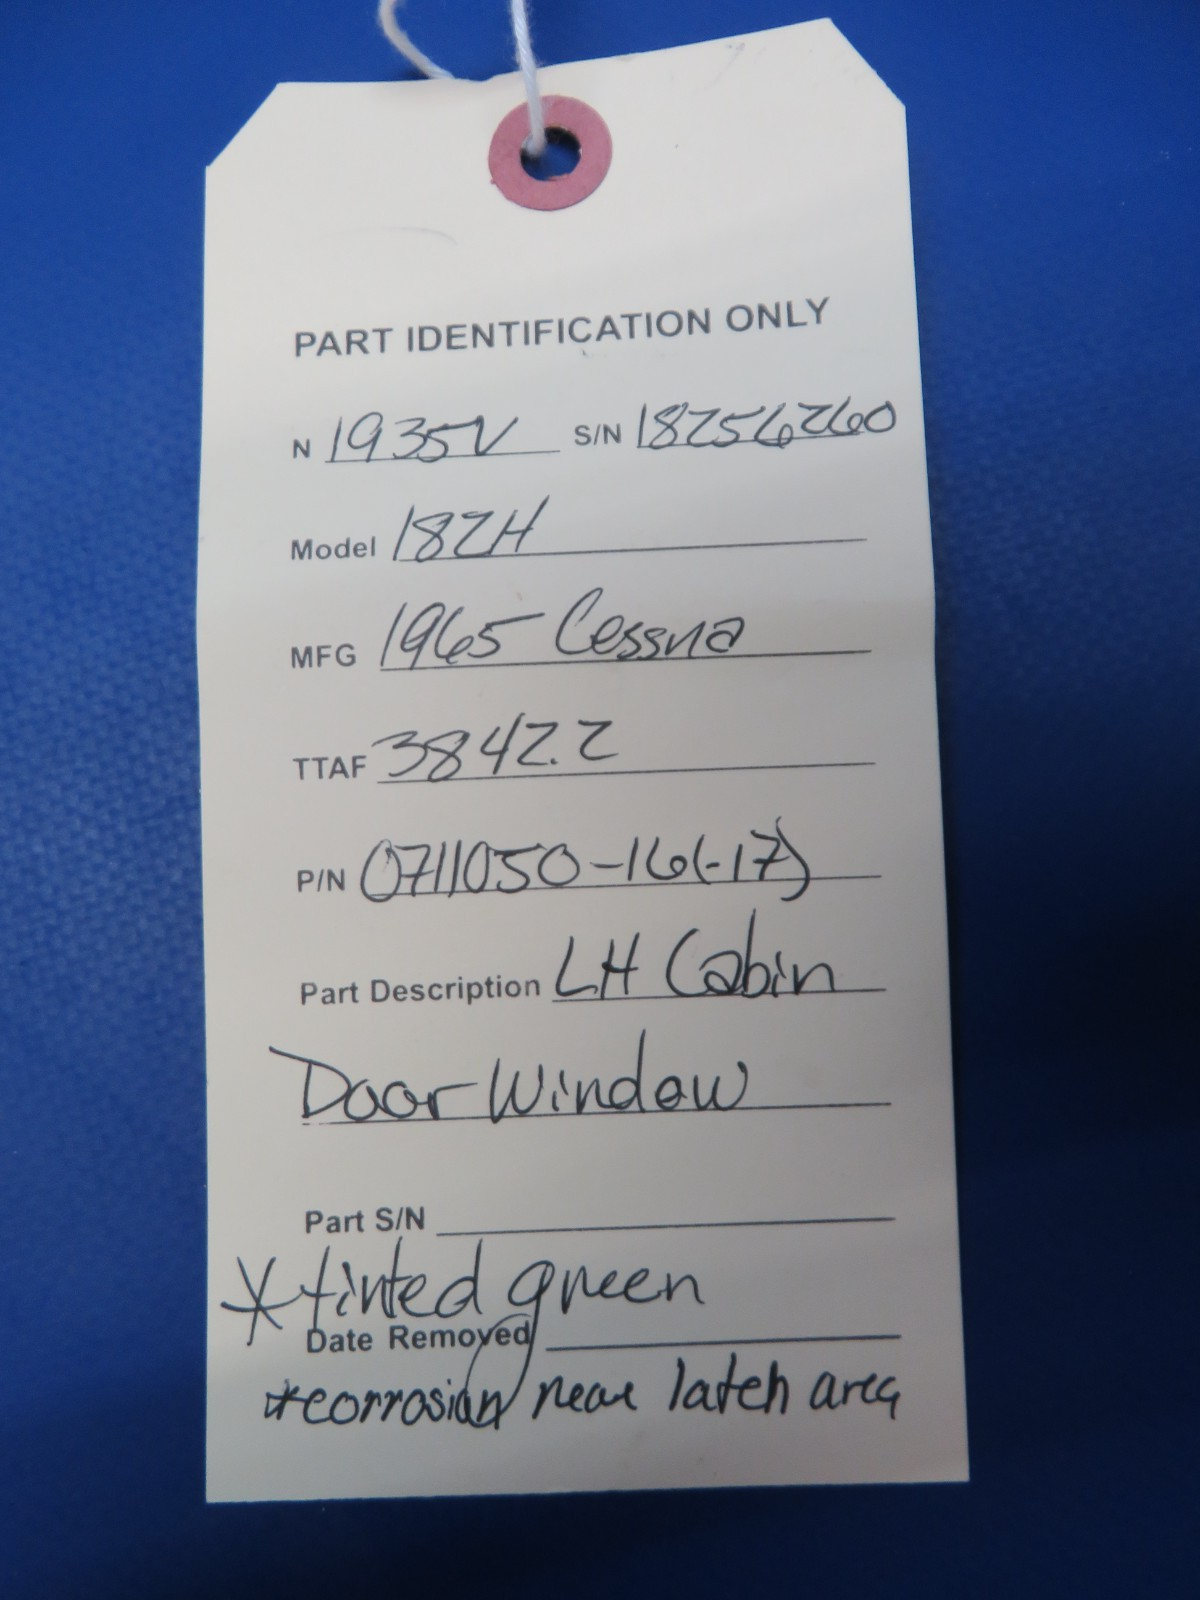 PART IDENTIFICATION ONLY
N 1935V S/N 18256260
Model 182H
MFG 1965 Cessna
TTAF 3842.2
P/N 0711050-16(-17)
Part Description LH Cabin
Door Window
Part S/N
*tinted green
Date Removed
*corrosion near latch area